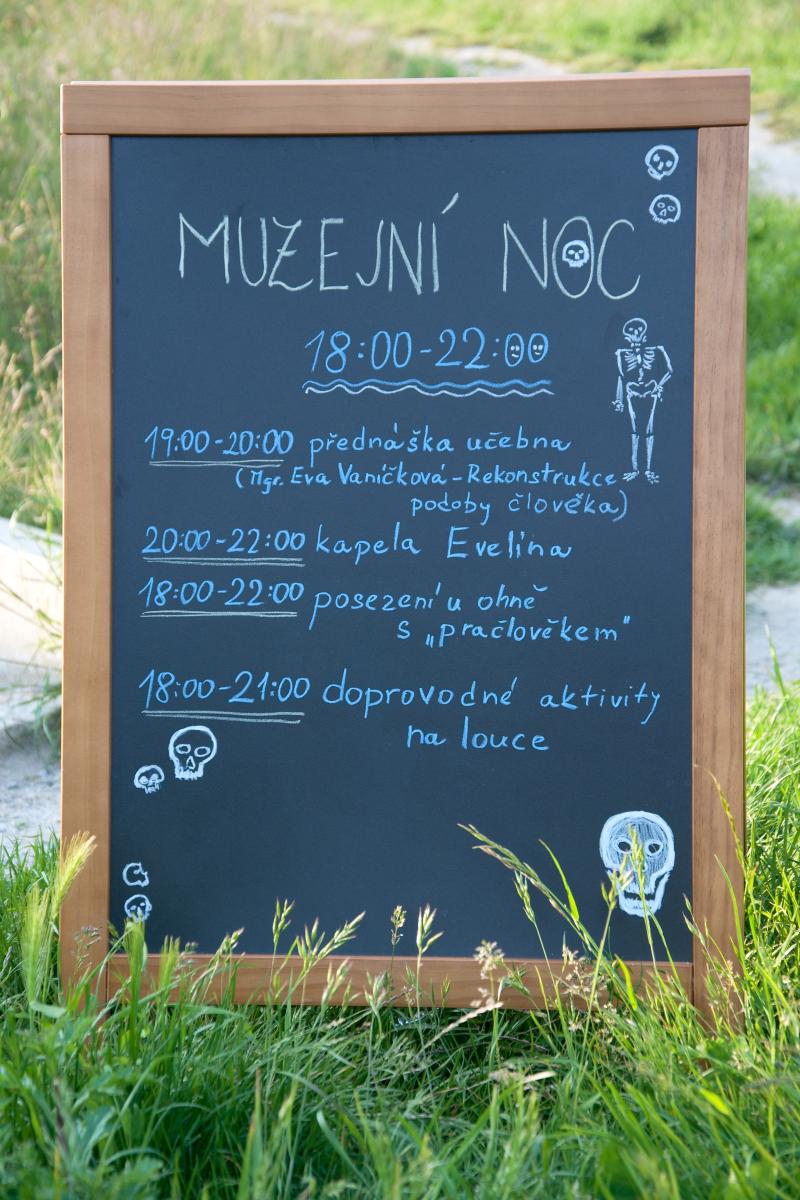 MUZEJNÍ NOC
18:00-22:00
19:00-20:00 přednáška učebna
(Mgr. Eva Vaníčková-Rekonstrukce
podoby člověka)
20:00-22:00 kapela Evelina
18:00-22:00 posezení u ohně
s „pračlověkem"
18:00-21:00 doprovodné aktivity
na louce